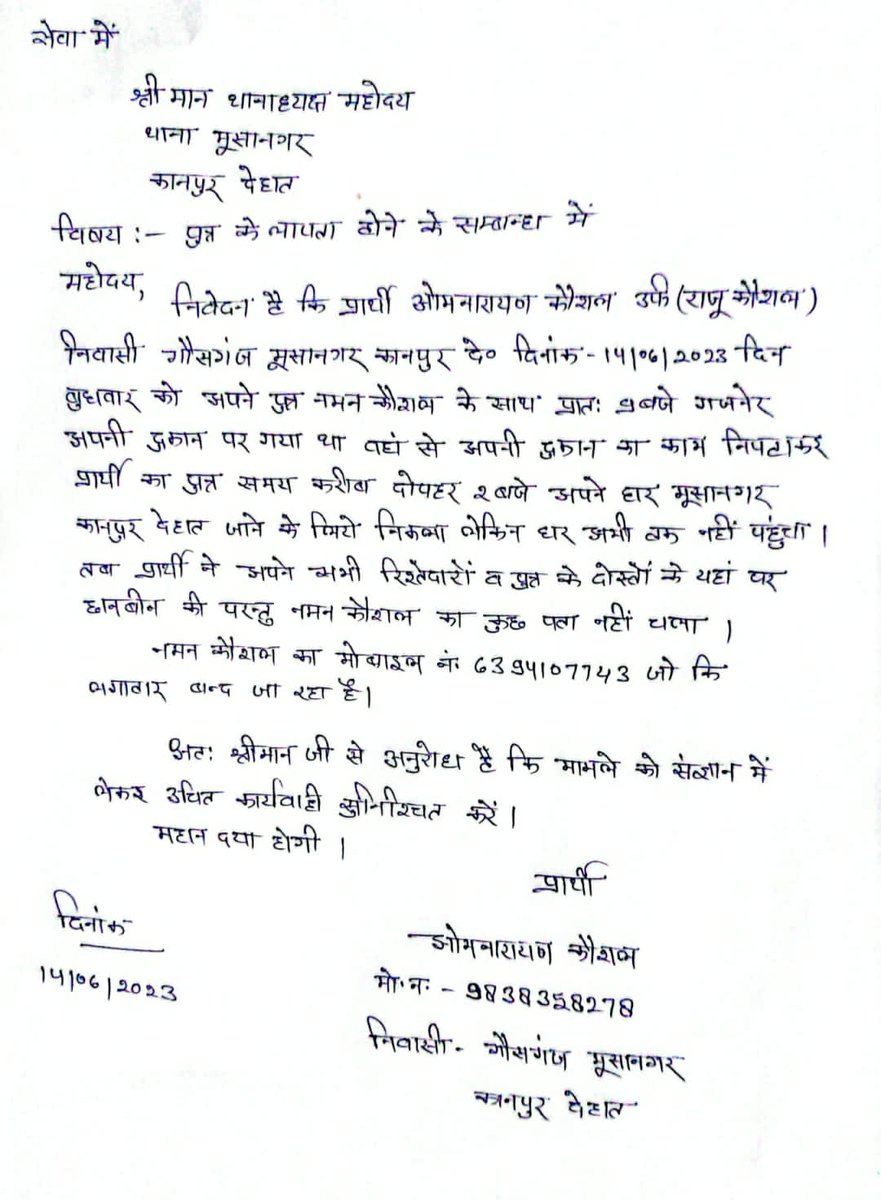 सेवा में
श्रीमान थानाध्यक्ष महोदय
थाना मूसानगर
कानपुर देहात
विषय :- पुत्र के लापता होने के सम्बान्ध में
महोदय,
निवेदन है कि प्रार्थी ओमनारायण कौशल उर्फ (राजू कौशल)
निवासी गौसगंज मूसानगर कानपुर दे० दिनांक-14/06/2023 दिन
बुधवार को अपने पुत्र नमन कौशल के साथ प्रातः 9 बजे गजनेर
अपनी दुकान पर गया था वहां से अपनी दुकान का काम निपटाकर
प्रार्थी का पुत्र समय करीब दोपहर 2 बजे अपने घर मूसानगर
कानपुर देहात जाने के लिये निकला लेकिन घर अभी तक नहीं पहुंचा।
तब प्रार्थी ने अपने सभी रिश्तेदारों व पुत्र के दोस्तों के यहां पर
छानबीन की परन्तु नमन कौशल का कुछ पता नहीं चला।
नमन कौशल का मोबाइल नं: 6394107743 जो कि
लगातार बन्द जा रहा है।
अतः श्रीमान जी से अनुरोध है कि मामले को संज्ञान में
लेकर उचित कार्यवाही सुनिश्चत करें।
महान दया होगी।
प्रार्थी
दिनांक
14/06/2023
ओमनारायण कौशल
मो.नः - 9838358278
निवासी- गौसगंज मूसानगर
कानपुर देहात